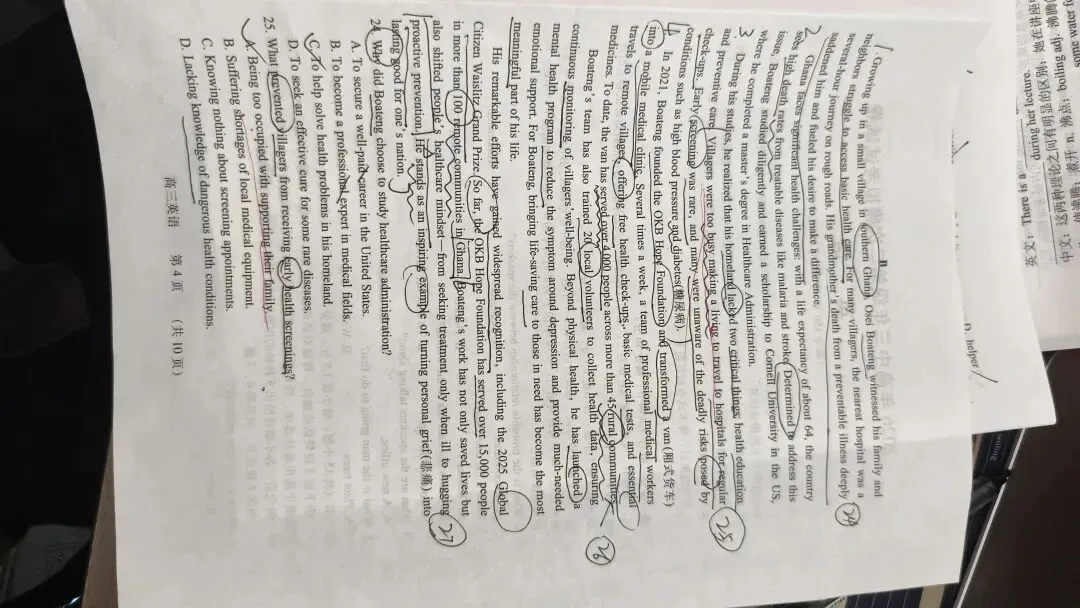 B
1. Growing up in a small village in southern Ghana, Osei Boateng witnessed his family and
neighbors struggle to access basic health care. For many villagers, the nearest hospital was a
several-hour journey on rough roads. His grandmother's death from a preventable illness deeply
saddened him and fueled his desire to make a difference. 24
2. Ghana faces significant health challenges: with a life expectancy of about 64, the country
sees high death rates from treatable diseases like malaria and stroke. Determined to address this
issue, Boateng studied diligently and earned a scholarship to Cornell University in the US,
where he completed a master's degree in Healthcare Administration.
3 During his studies, he realized that his homeland lacked two critical things: health education
and preventive care. Villagers were too busy making a living to travel to hospitals for regular
check-ups. Early screening was rare, and many were unaware of the deadly risks posed by 25
conditions such as high blood pressure and diabetes(糖尿病).
4 In 2021, Boateng founded the OKB Hope Foundation and transformed a van(厢式货车)
into a mobile medical clinic. Several times a week, a team of professional medical workers
travels to remote villages, offering free health check-ups, basic medical tests, and essential
medicines. To date, the van has served over 4,000 people across more than 45 rural communities. 26
Boateng's team has also trained 20 local volunteers to collect health data, ensuring
continuous monitoring of villagers' well-being. Beyond physical health, he has launched a
mental health program to reduce the symptom around depression and provide much-needed
emotional support. For Boateng, bringing life-saving care to those in need has become the most
meaningful part of his life.
His remarkable efforts have gained widespread recognition, including the 2025 Global
Citizen Waislitz Grand Prize. So far, the OKB Hope Foundation has served over 15,000 people
in more than 100 remote communities in Ghana. Boateng's work has not only saved lives but
also shifted people's healthcare mindset—from seeking treatment only when ill to hugging
proactive prevention. He stands as an inspiring example of turning personal grief(悲痛) into 27
lasting good for one's nation.
24. Why did Boateng choose to study healthcare administration?
A. To secure a well-paid career in the United States.
B. To become a professional expert in medical fields.
C. To help solve health problems in his homeland.
D. To seek an effective cure for some rare diseases.
25. What prevented villagers from receiving early health screenings?
A. Being too occupied with supporting their family.
B. Suffering shortages of local medical equipment.
C. Knowing nothing about screening appointments.
D. Lacking knowledge of dangerous health conditions.
高三英语 第 4 页 (共 10 页)
D. helper
during her lecture.